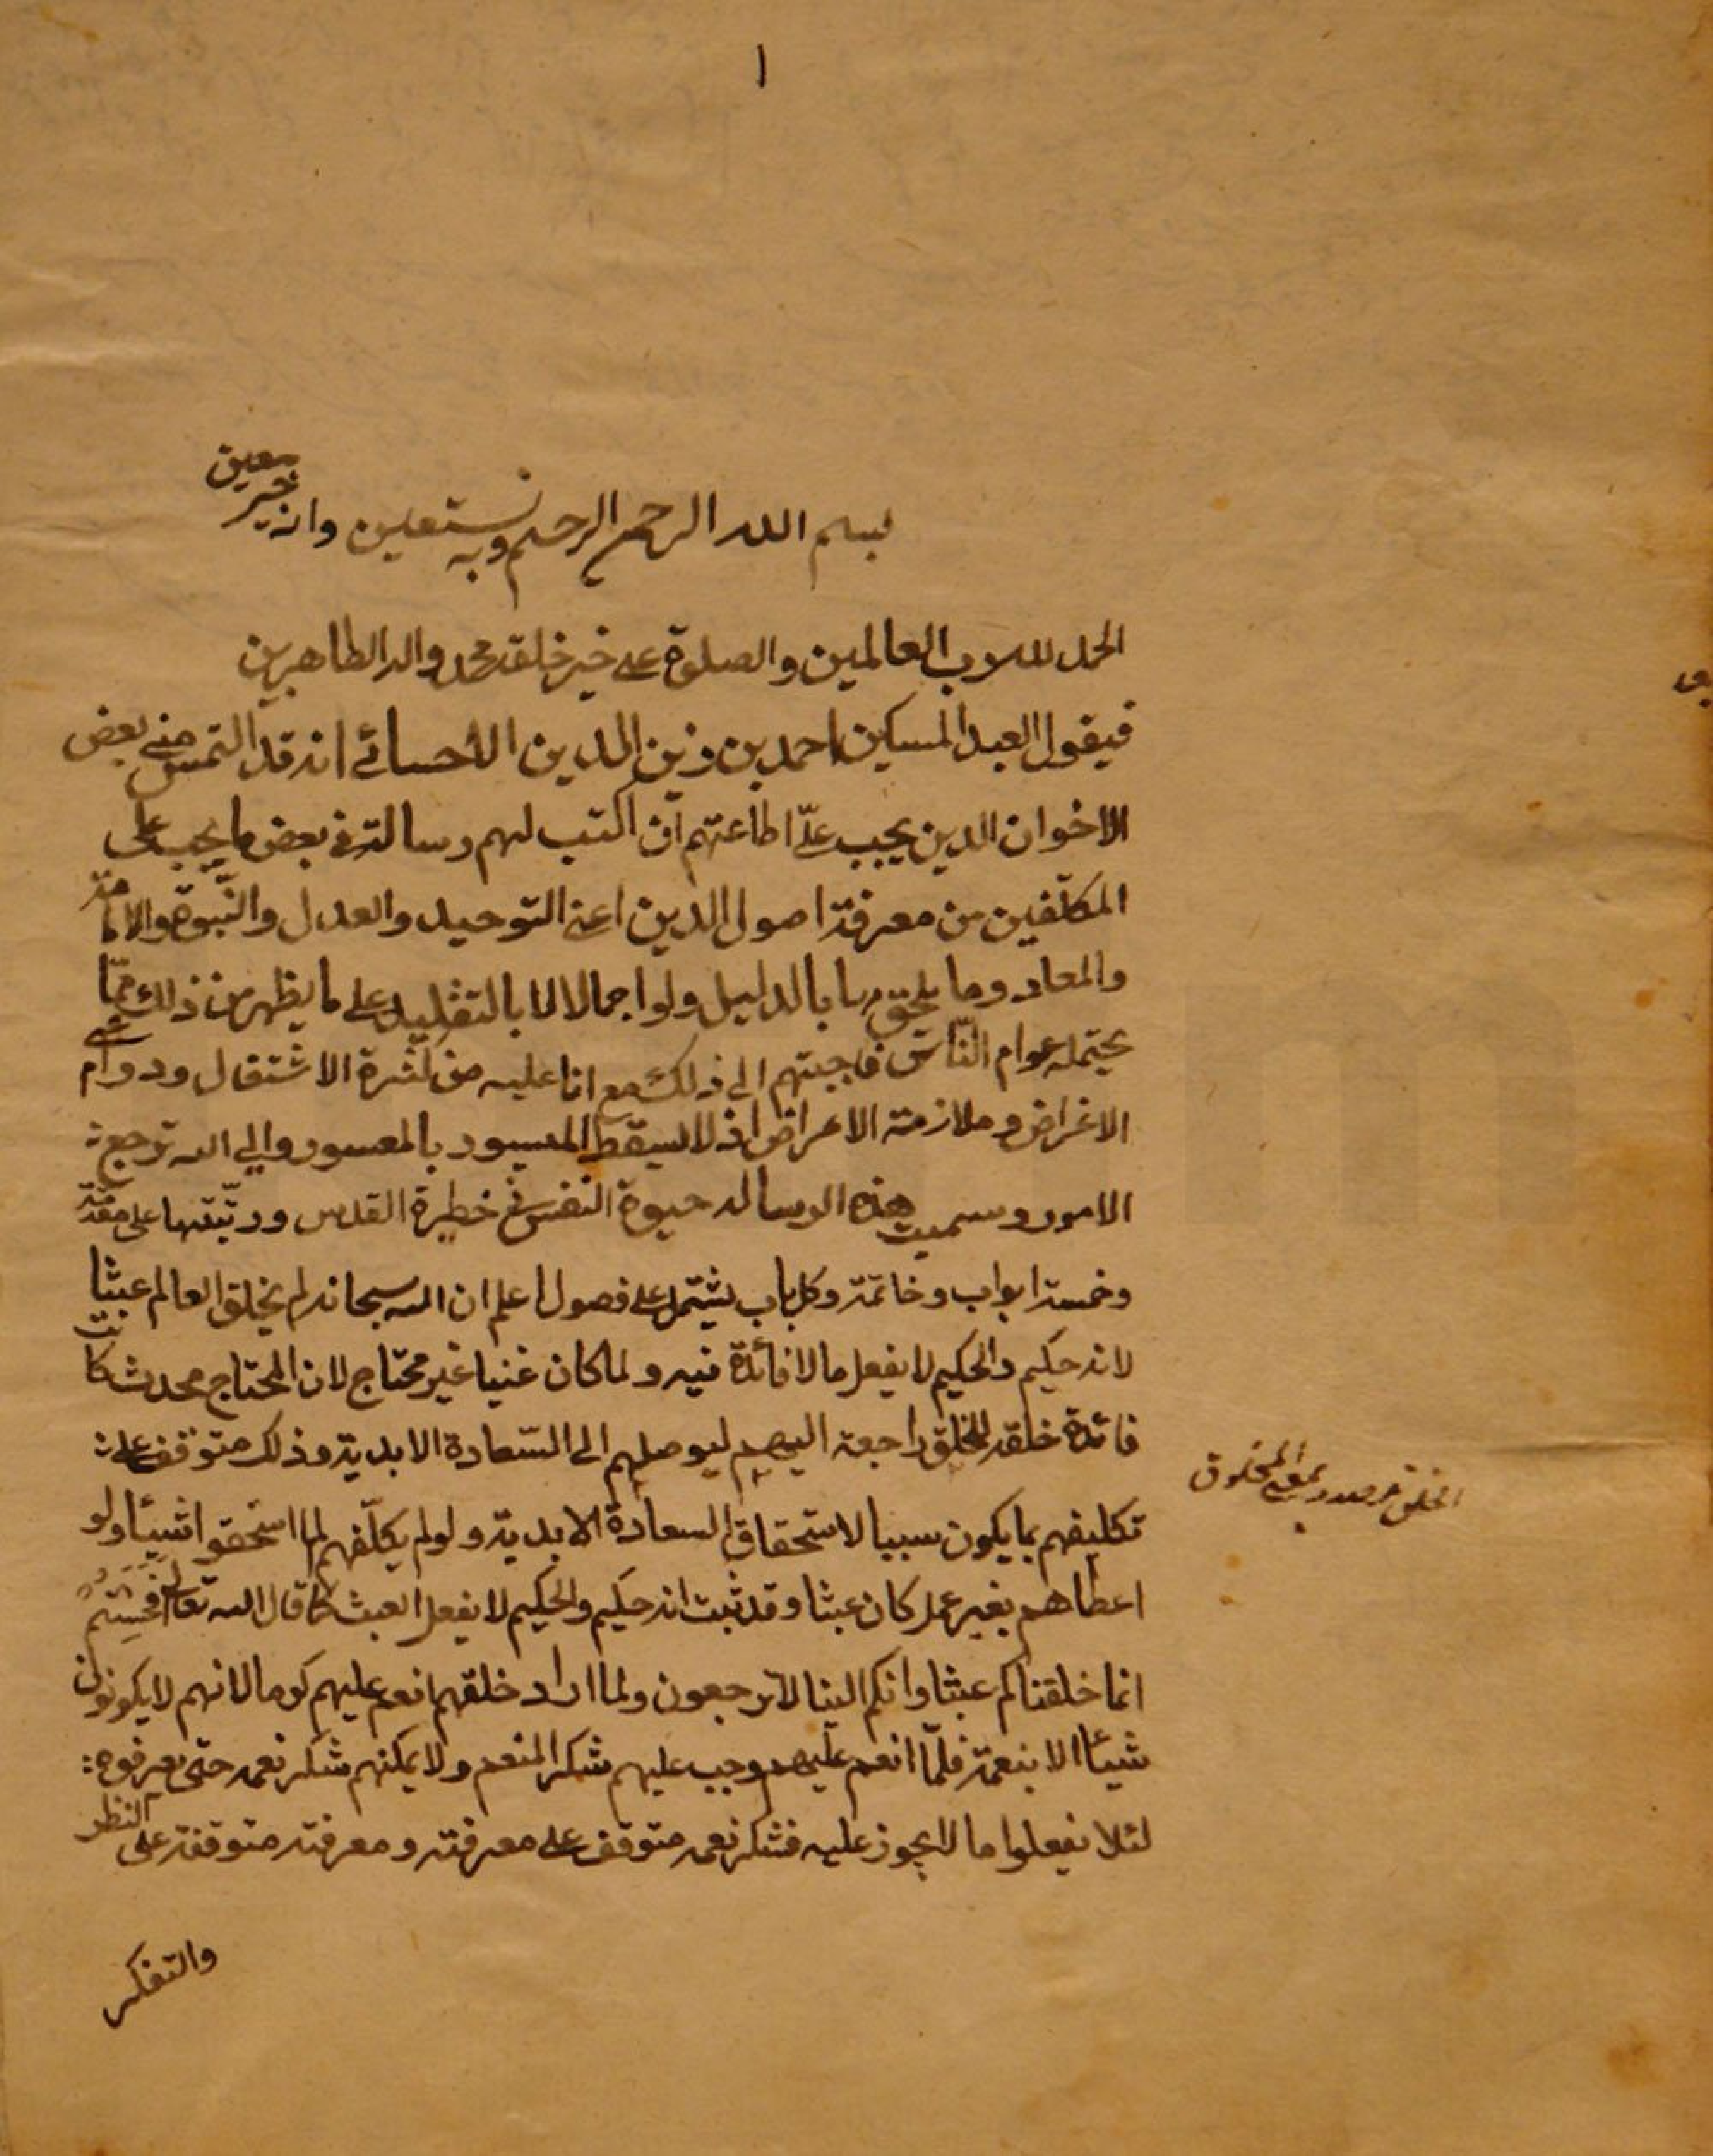 ١
بسم الله الرحمن الرحيم وبه نستعين وانه خير معين
الحمد لله رب العالمين والصلوة على خير خلقه محمد واله الطاهرين
فيقول العبد المسكين احمد بن زين الدين الاحسائي انه قد التمس مني بعض
الاخوان الدين يجب عليّ اطاعتهم ان اكتب لهم رسالة في بعض ما يجب على
المكلفين من معرفة اصول الدين اعني التوحيد والعدل والنّبوة والامامة
والمعاد وما يلحق بها بالدليل ولو اجمالا لا بالتقليد على ما يظهر من ذلك ممّا
يحتمله عوام النّاس فاجبتهم الى ذلك مع انا عليه من كثرة الاشتغال ودوام
الاغراض وملازمة الامراض اذ لا يسقط الميسور بالمعسور والى الله ترجع
الامور وسميت هذه الرسالة حيوة النفس في خطيرة القدس ورتّبتها على مقدّمة
وخمسة ابواب وخاتمة وكل باب يشتمل على فصول اعلم ان الله سبحانه لم يخلق العالم عبثا
لانه حكيم والحكيم لا يفعل ما لا فائدة فيه ولما كان غنيا غير محتاج لان المحتاج محدث كانت
فائدة خلقه للخلق راجعة اليهم ليوصلهم الى السّعادة الابدية وذلك متوقف على
الخلق مصدر بمعنى المخلوق
تكليفهم بما يكون سببا لاستحقاق السعادة الابدية ولو لم يكلّفهم لما استحقوا شيئا ولو
اعطاهم بغير عمل كان عبثا وقد ثبت انه حكيم والحكيم لا يفعل العبث كما قال الله تعالى افحسبتم
انما خلقناكم عبثا وانكم الينا لا ترجعون ولما اراد خلقهم انعم عليهم كرما لانهم لا يكونون
شيئا الا بنعمة فلمّا انعم عليهم وجب عليهم شكر المنعم ولا يمكنهم شكر نعمه حتى يعرفوه
لئلا يفعلوا ما لا يجوز عليه فشكر نعمه متوقف على معرفته ومعرفته متوقفة على النظر
والتفكر